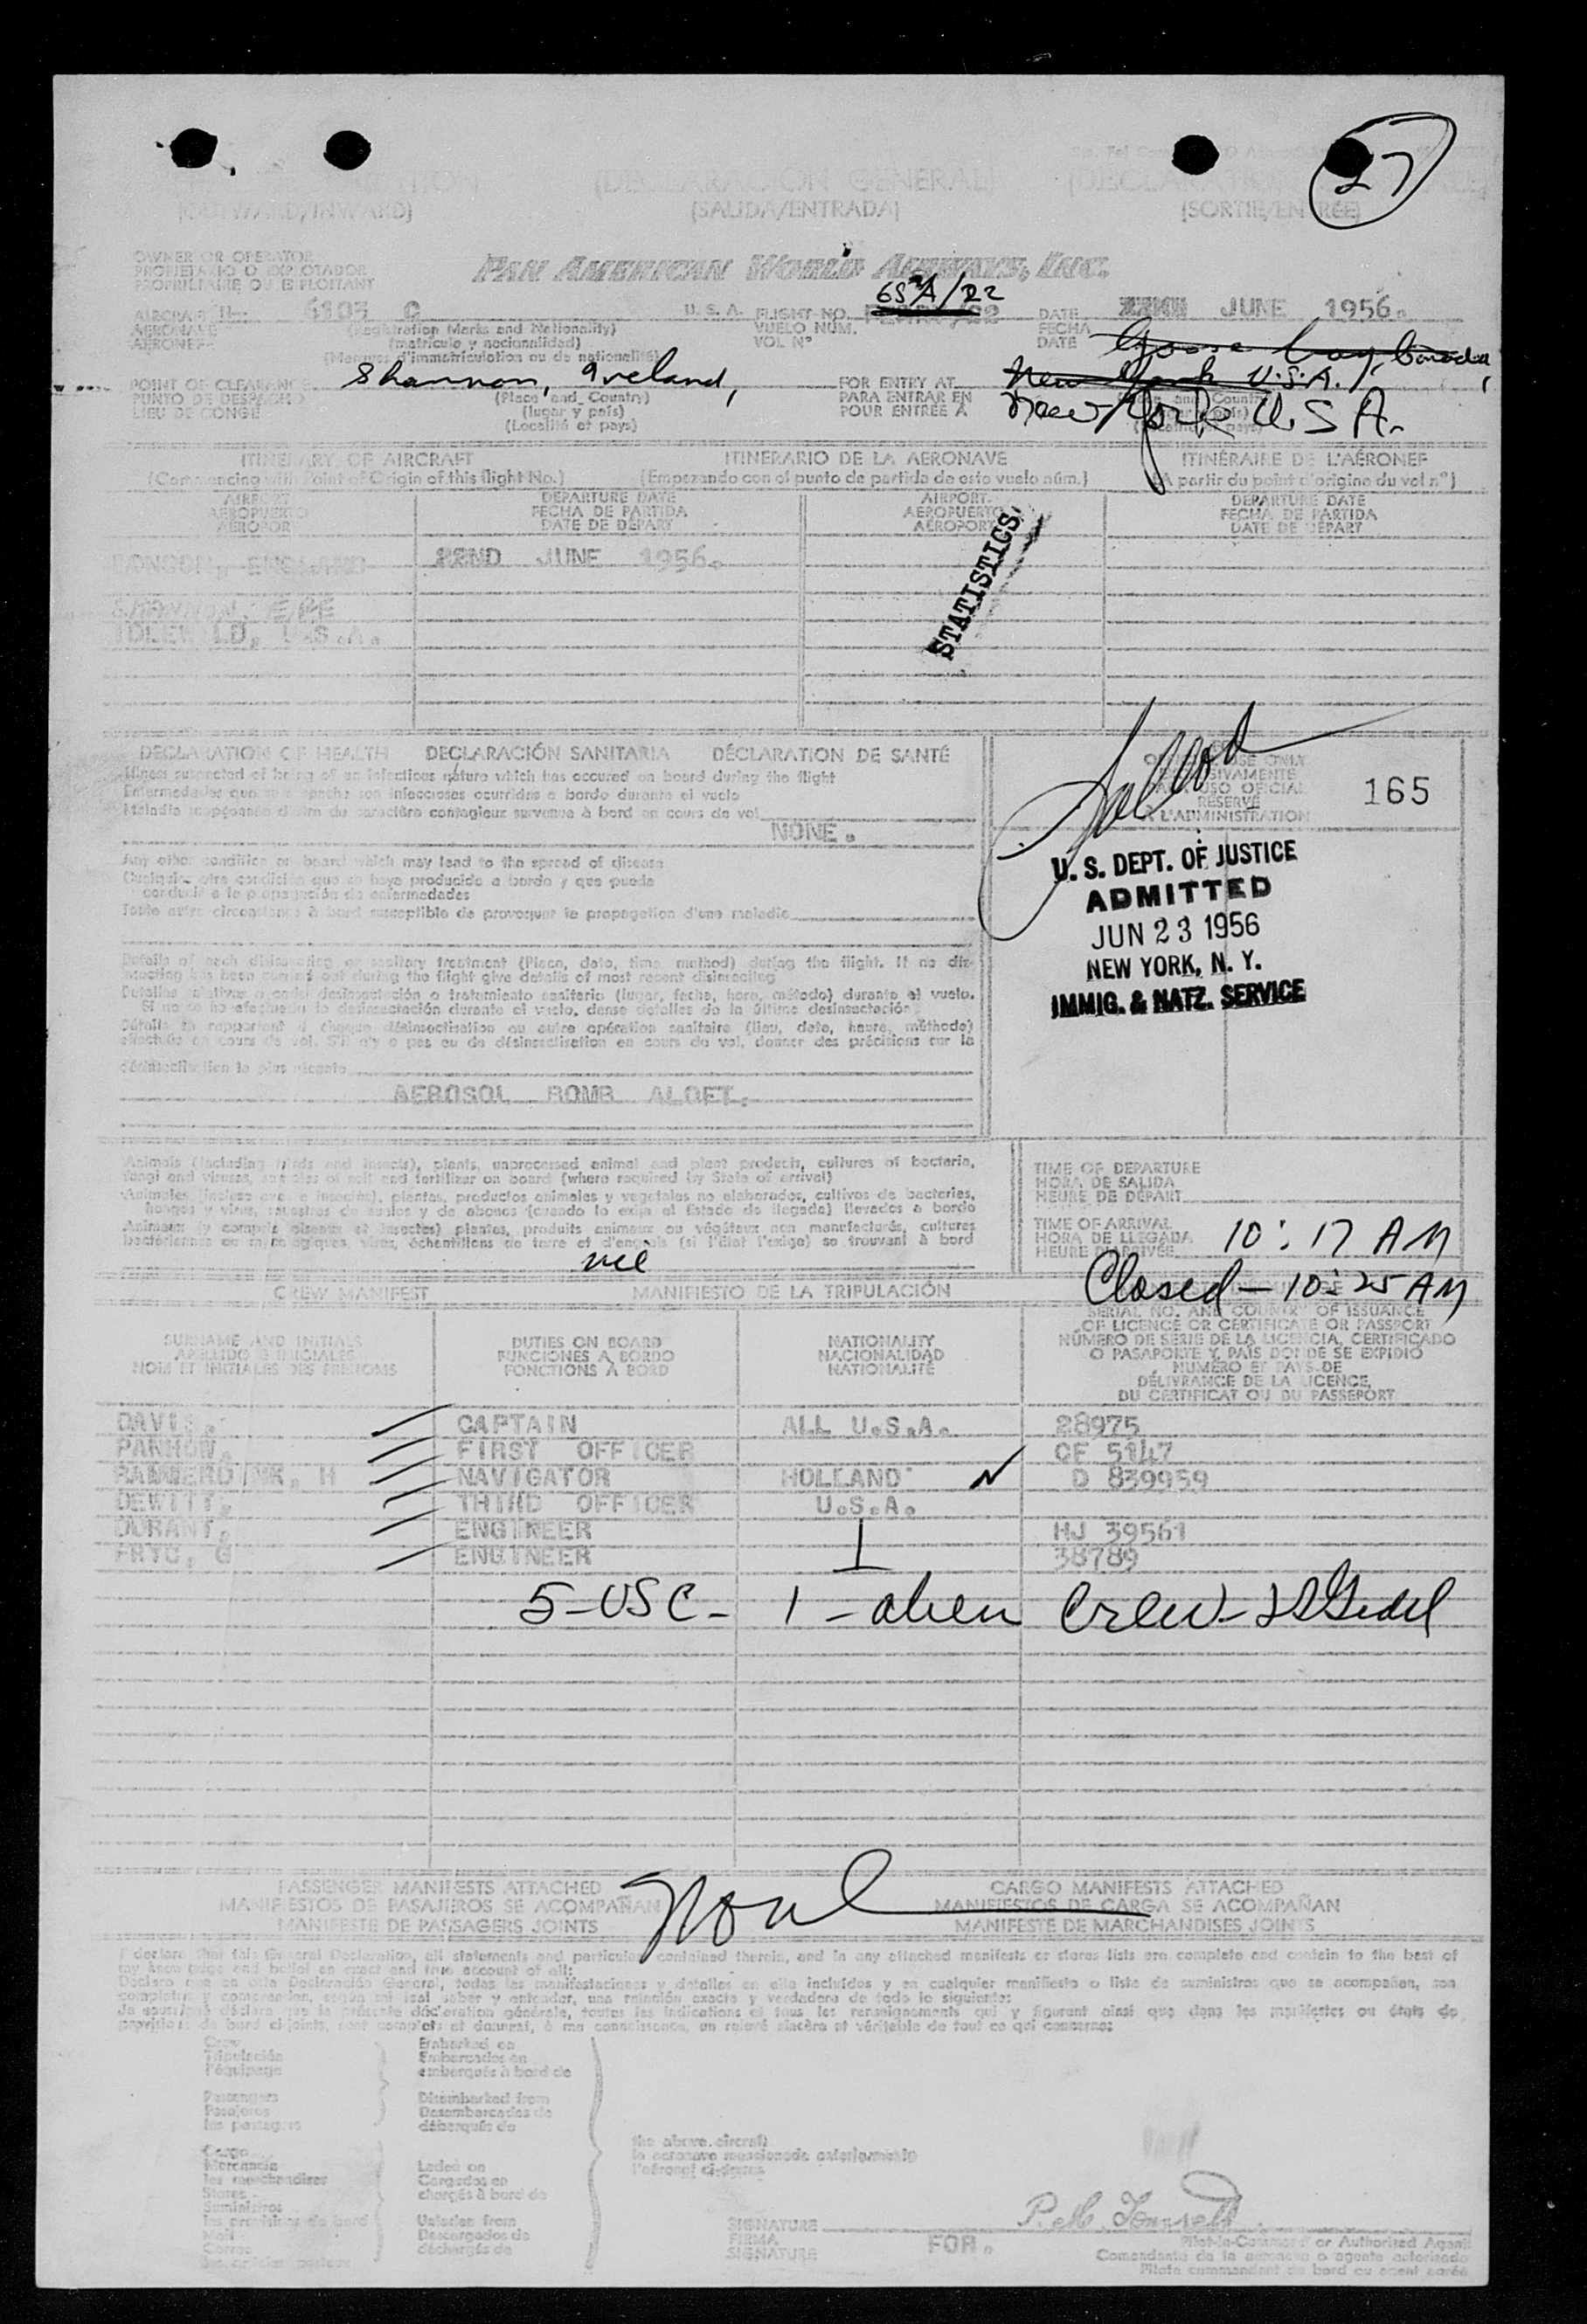 27
(DECLARACIÓN GENERAL)
(OUTWARD/INWARD) (SALIDA/ENTRADA) (SORTIE/ENTRÉE)
OWNER OR OPERATOR
PROPIETARIO O EXPLOTADOR
PROPRIÉTAIRE OU EXPLOITANT
PAN AMERICAN WORLD AIRWAYS, INC.
65A/22
AIRCRAFT N- 6103 C U.S.A. FLIGHT NO. DATE JUNE 1956.
AERONAVE (Registration Marks and Nationality) VUELO NÚM. FECHA
AÉRONEF (matrícula y nacionalidad) VOL Nº DATE
(Marques d'immatriculation ou de nationalité)
Goose Bay, Canada
POINT OF CLEARANCE Shannon, Ireland, FOR ENTRY AT New York U.S.A.
PUNTO DE DESPACHO (Place and Country) PARA ENTRAR EN New York U.S.A.
LIEU DE CONGÉ (lugar y país) POUR ENTRÉE A
(Localité et pays)
ITINERARY OF AIRCRAFT ITINERARIO DE LA AERONAVE ITINÉRAIRE DE L'AÉRONEF
(Commencing with Point of Origin of this flight No.) (Empezando con el punto de partida de este vuelo núm.) (A partir du point d'origine du vol nº)
AIRPORT DEPARTURE DATE AIRPORT DEPARTURE DATE
AEROPUERTO FECHA DE PARTIDA AEROPUERTO FECHA DE PARTIDA
AÉROPORT DATE DE DÉPART AÉROPORT DATE DE DÉPART
LONDON, ENGLAND 22ND JUNE 1956.
SHANNON, EIRE
IDLEWILD, U.S.A.
STATISTICS
DECLARATION OF HEALTH DECLARACIÓN SANITARIA DÉCLARATION DE SANTÉ
Illness suspected of being of an infectious nature which has occured on board during the flight
Enfermedades que se sospecha son infecciosas ocurridas a bordo durante el vuelo
Maladie soupçonnée d'être du caractère contagieux survenue à bord en cours de vol
NONE.
OFFICIAL USE ONLY
EXCLUSIVAMENTE
PARA USO OFICIAL
RÉSERVÉ
À L'ADMINISTRATION
165
Any other condition on board which may lead to the spread of disease
Cualquier otra condición que se haya producido a bordo y que pueda
conducir a la propagación de enfermedades
Toute autre circonstance à bord susceptible de provoquer la propagation d'une maladie
U. S. DEPT. OF JUSTICE
ADMITTED
JUN 23 1956
NEW YORK, N. Y.
IMMIG. & NATZ. SERVICE
Details of each disinsecting or sanitary treatment (Place, date, time, method) during the flight. If no dis-
insecting has been carried out during the flight give details of most recent disinsecting
Detalles relativos a cada desinsectación o tratamiento sanitario (lugar, fecha, hora, método) durante el vuelo.
Si no se ha efectuado la desinsectación durante el vuelo, dense detalles de la última desinsectación
Détails se rapportant à chaque désinsectisation ou autre opération sanitaire (lieu, date, heure, méthode)
effectuée en cours de vol. S'il n'y a pas eu de désinsectisation en cours de vol, donner des précisions sur la
désinsectisation la plus récente
AEROSOL BOMB ALOFT.
Animals (including birds and insects), plants, unprocessed animal and plant products, cultures of bacteria,
fungi and viruses, samples of soil and fertilizer on board (where required by State of arrival)
Animales (incluso aves e insectos), plantas, productos animales y vegetales no elaborados, cultivos de bacterias,
hongos y virus, muestras de suelos y de abonos (cuando lo exija el Estado de llegada) llevados a bordo
Animaux (y compris oiseaux et insectes) plantes, produits animaux ou végétaux non manufacturés, cultures
bactériennes ou mycologiques, virus, échantillons de terre et d'engrais (si l'état l'exige) se trouvant à bord
nil
TIME OF DEPARTURE
HORA DE SALIDA
HEURE DE DÉPART
TIME OF ARRIVAL
HORA DE LLEGADA 10:17 AM
HEURE D'ARRIVÉE
Closed - 10:25 AM
CREW MANIFEST MANIFIESTO DE LA TRIPULACIÓN
SURNAME AND INITIALS DUTIES ON BOARD NATIONALITY SERIAL NO. AND COUNTRY OF ISSUANCE
APELLIDO E INICIALES FUNCIONES A BORDO NACIONALIDAD OF LICENCE OR CERTIFICATE OR PASSPORT
NOM ET INITIALES DES PRÉNOMS FONCTIONS À BORD NATIONALITÉ NÚMERO DE SERIE DE LA LICENCIA, CERTIFICADO
O PASAPORTE Y PAÍS DONDE SE EXPIDIÓ
NUMÉRO ET PAYS DE
DÉLIVRANCE DE LA LICENCE,
DU CERTIFICAT OU DU PASSEPORT
DAVIS, CAPTAIN ALL U.S.A. 28975
PANHOW, FIRST OFFICER CF 5147
H NAVIGATOR HOLLAND D 839959
DEWITT, THIRD OFFICER U.S.A.
DURANT, ENGINEER HJ 39561
G ENGINEER 38789
5-USC- 1-alien Crew-
PASSENGER MANIFESTS ATTACHED CARGO MANIFESTS ATTACHED
MANIFIESTOS DE PASAJEROS SE ACOMPAÑAN MANIFIESTOS DE CARGA SE ACOMPAÑAN
MANIFESTE DE PASSAGERS JOINTS MANIFESTE DE MARCHANDISES JOINTS
None
I declare that this General Declaration, all statements and particulars contained therein, and in any attached manifests or stores lists are complete and contain to the best of
my knowledge and belief an exact and true account of all:
Declaro que en esta Declaración General, todas las manifestaciones y detalles en ella incluidos y en cualquier manifiesto o lista de suministros que se acompañan, son
completos y comprenden, según mi leal saber y entender, una relación exacta y verdadera de todo lo siguiente:
Je soussigné déclare que la présente déclaration générale, toutes les indications et tous les renseignements qui y figurent ainsi que dans les manifestes ou états de
provisions de bord ci-joints, sont complets et donnent, à ma connaissance, un relevé sincère et véritable de tout ce qui concerne:
Crew Embarked on
Tripulación Embarcados en
l'équipage embarqués à bord de
Passengers Disembarked from
Pasajeros Desembarcados de
les passagers débarqués de
the above aircraft
la aeronave mencionada anteriormente
l'aéronef ci-dessus
Cargo
Mercancía Laden on
les marchandises Cargados en
Stores chargés à bord de
Suministros
les provisions de bord Unladen from
Mail Descargados de
Correo déchargés de
SIGNATURE
FIRMA FOR.
SIGNATURE
Pilot-in-Command or Authorized Agent
Comandante de la aeronave o agente autorizado
Pilote commandant de bord ou agent agréé